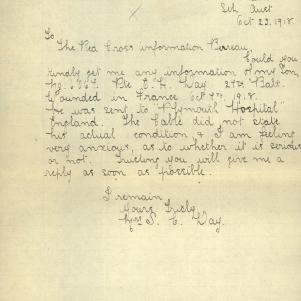 Sth Aust
Oct 23. 1918.
To
The Red Cross information Bureau,
Could you
kindly get me any information of my Son,
Pte E. H. Day 27th Batt.
Wounded in France Oct 1918.
He was sent to "Plymouth Hospital"
England. The Cable did not state
his actual condition, & I am feeling
very anxious, as to whether it is serious
or not. Trusting you will give me a
reply as soon as possible.
I remain
Yours Truly
Mrs E. Day.